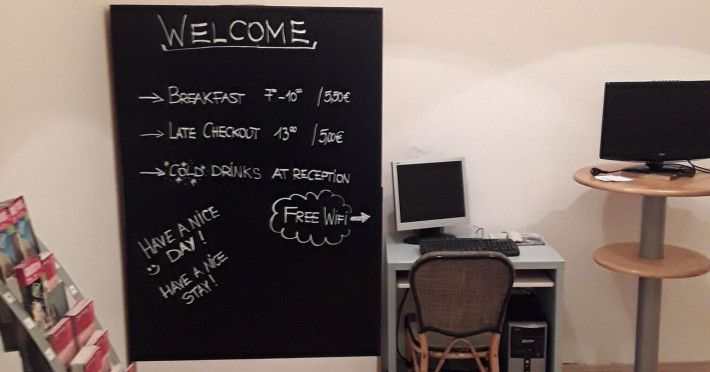 WELCOME
→ BREAKFAST 7⁰⁰-10⁰⁰ /5,50€
→ LATE CHECKOUT 13⁰⁰ /5,00€
→ COLD DRINKS AT RECEPTION
FREE WiFi →
HAVE A NICE
DAY!
HAVE A NICE
STAY!